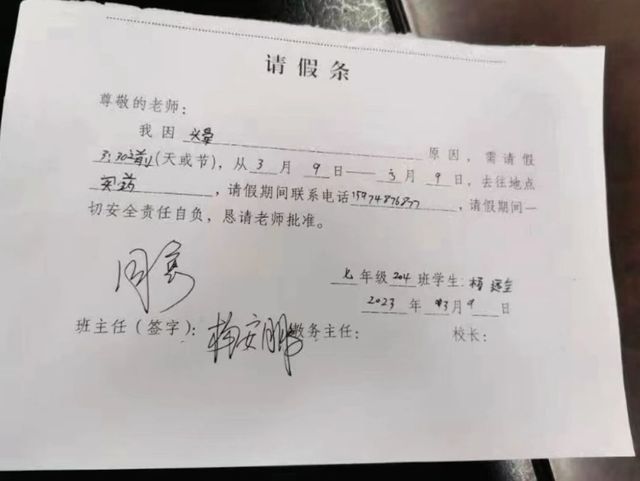 请假条
尊敬的老师：
我因 头晕 原因，需请假
(天或节)，从 3 月 9 日——3 月 9 日，去往地点
买药，请假期间联系电话15974876877，请假期间一
切安全责任自负，恳请老师批准。
同意
七年级204班学生：杨
2023年 3月9日
班主任（签字）：杨安鹏 教务主任： 校长：